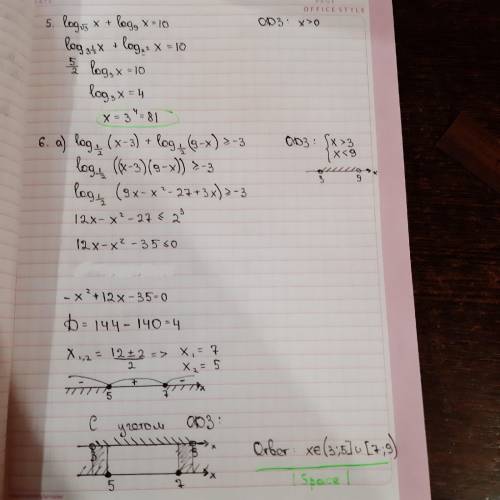 OFFICE STYLE
5. log_√3 x + log_9 x = 10 ОДЗ: x>0
log_{3^{1/2}} x + log_{3^2} x = 10
5/2 log_3 x = 10
log_3 x = 4
x = 3^4 = 81
6. а) log_{1/2} (x-3) + log_{1/2} (9-x) ≥ -3 ОДЗ: { x>3
x<9
log_{1/2} ((x-3)(9-x)) ≥ -3
3 9 x
log_{1/2} (9x - x² - 27 + 3x) ≥ -3
12x - x² - 27 ≤ 2^3
12x - x² - 35 ≤ 0
-x² + 12x - 35 = 0
D = 144 - 140 = 4
x_{1,2} = (12 ± 2)/2 => x_1 = 7
x_2 = 5
- + - x
5 7
С учетом ОДЗ:
x
Ответ: x∈(3;5]∪[7;9)
x
5 7
|Space|